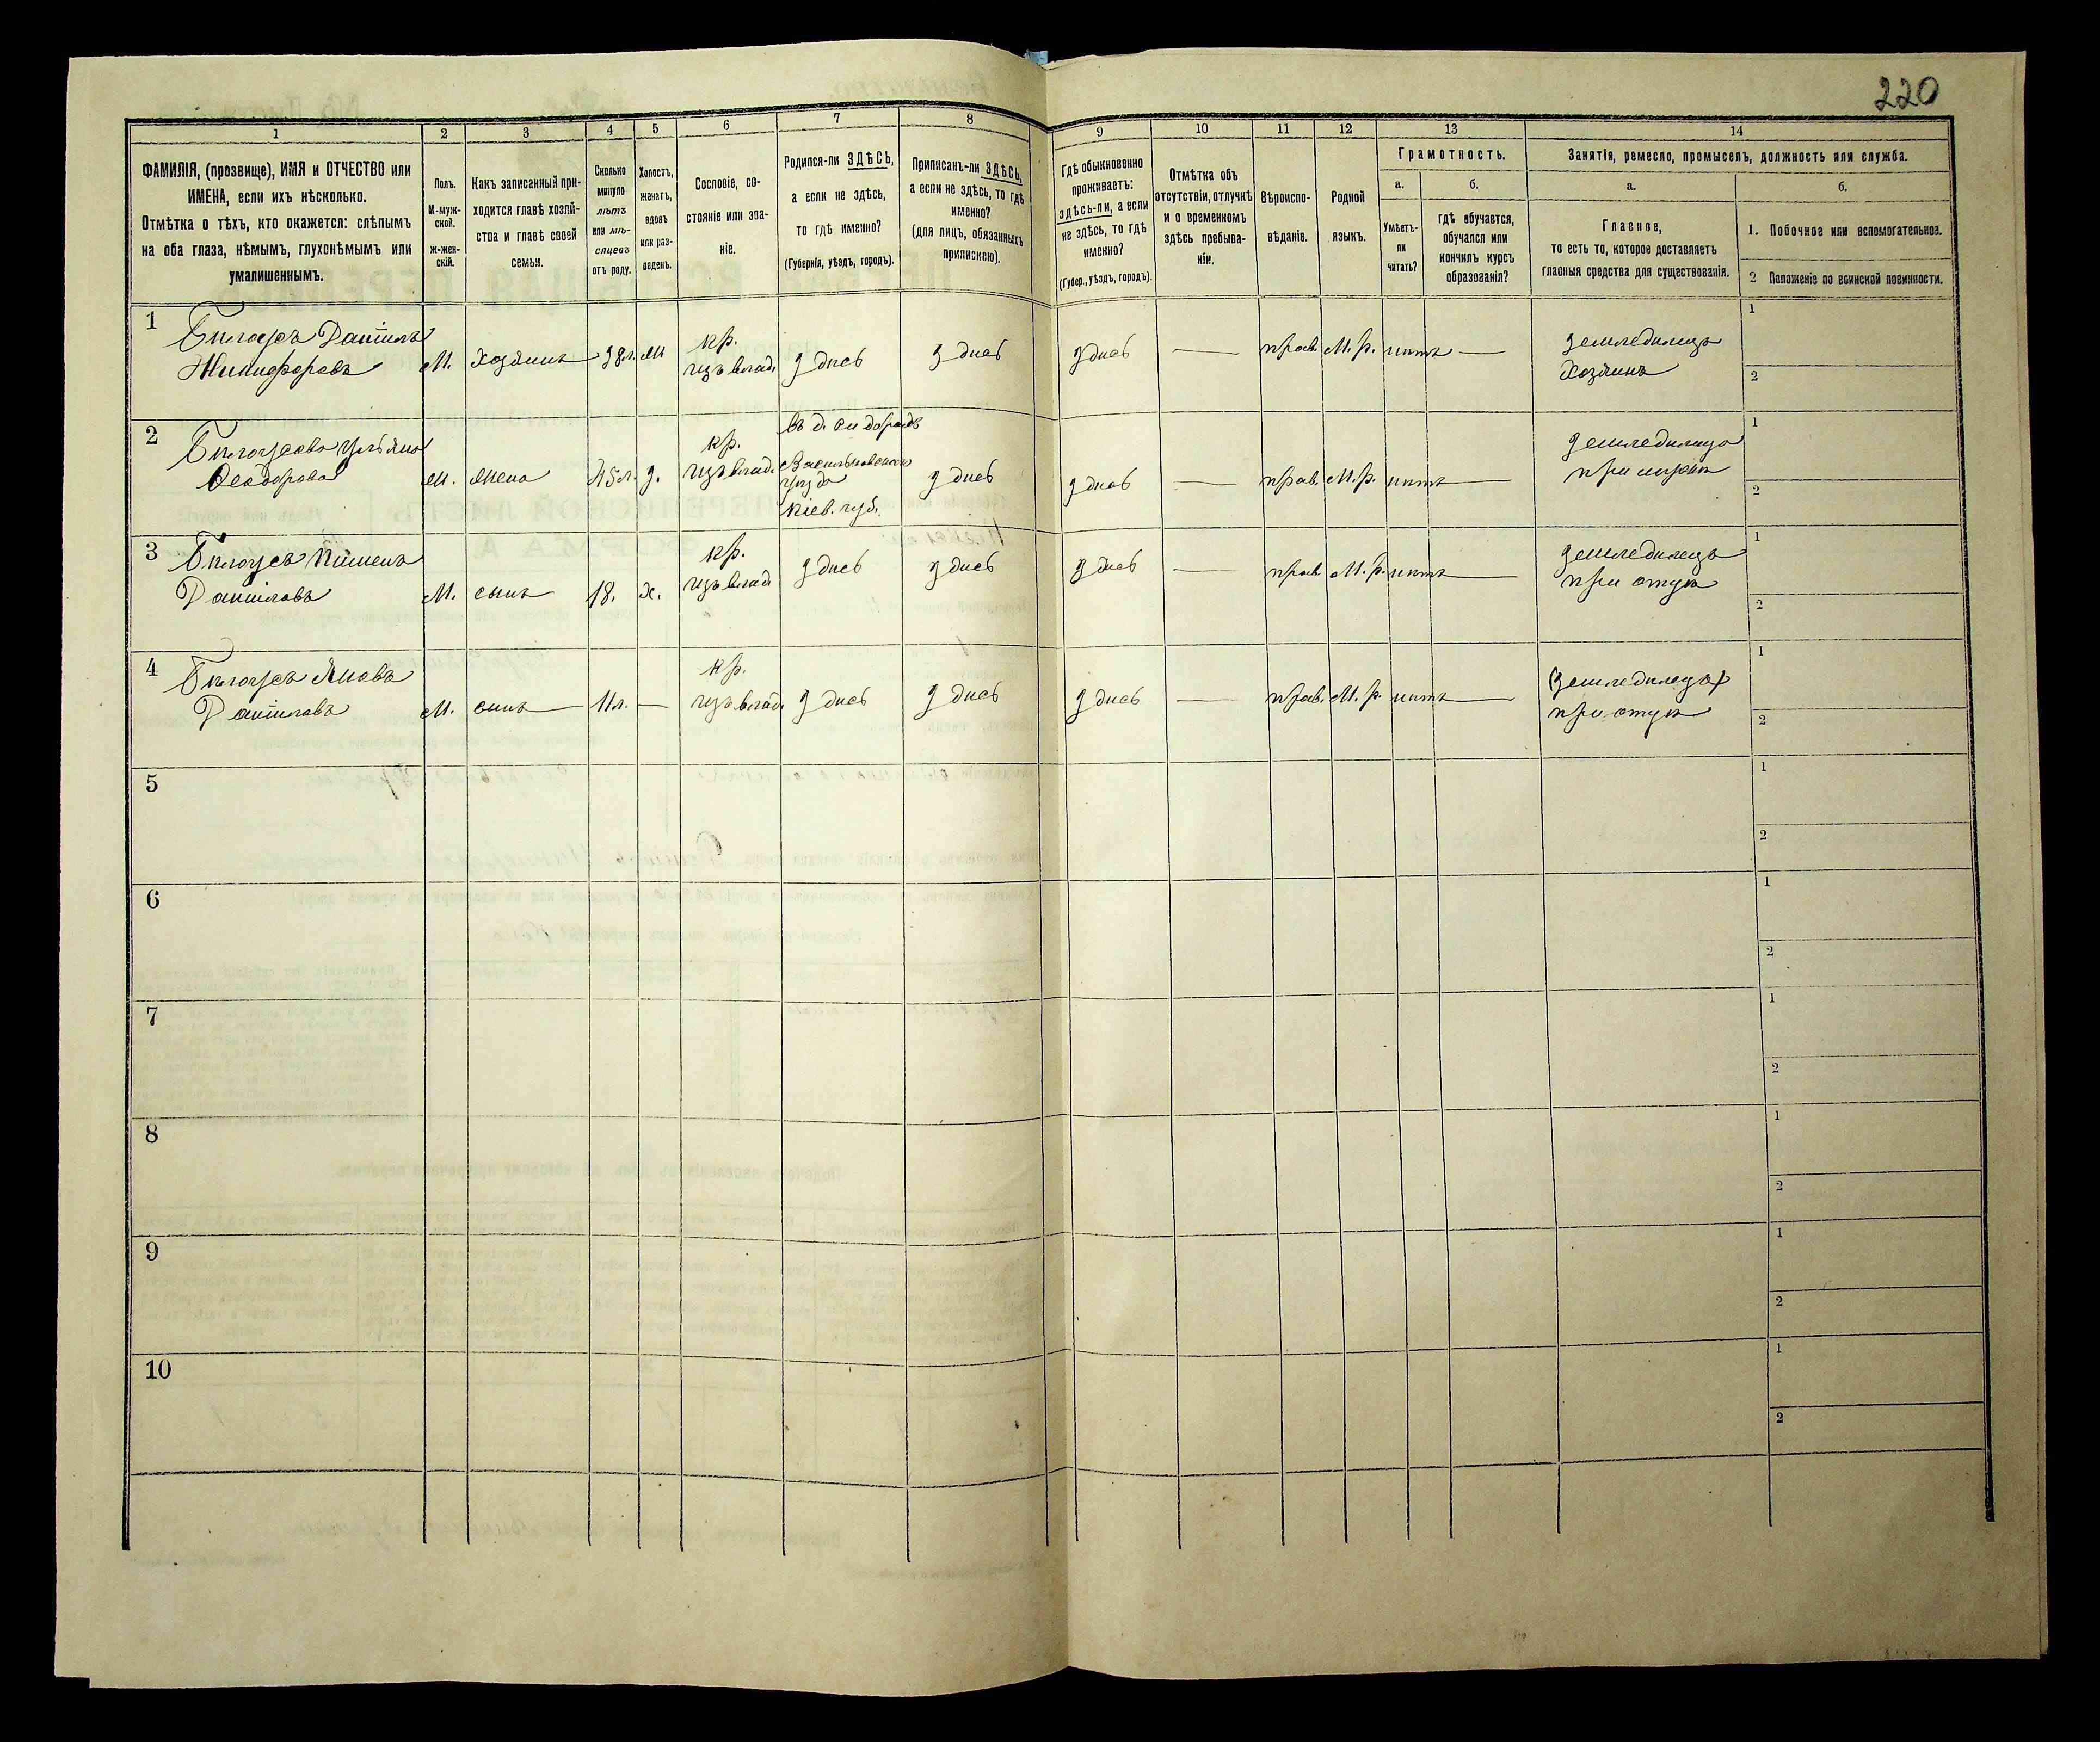 220
1 2 3 4 5 6 7 8 9 10 11 12 13 14
ФАМИЛІЯ, (прозвище), ИМЯ и ОТЧЕСТВО или
ИМЕНА, если ихъ нѣсколько.
Отмѣтка о тѣхъ, кто окажется: слѣпымъ
на оба глаза, нѣмымъ, глухонѣмымъ или
умалишеннымъ.
Полъ.
М-муж-
ской.
ж-жен-
скій.
Какъ записанный при-
ходится главѣ хозяй-
ства и главѣ своей
семьи.
Сколько
минуло
лѣтъ
или мѣ-
сяцевъ
отъ роду.
Холостъ,
женатъ,
вдовъ
или раз-
веденъ.
Сословіе, со-
стояніе или зва-
ніе.
Родился-ли ЗДѢСЬ,
а если не здѣсь,
то гдѣ именно?
(Губернія, уѣздъ, городъ).
Приписанъ-ли ЗДѢСЬ,
а если не здѣсь, то гдѣ
именно?
(для лицъ, обязанныхъ
припискою).
Гдѣ обыкновенно
проживаетъ:
здѣсь-ли, а если
не здѣсь, то гдѣ
именно?
(Губер., уѣздъ, городъ).
Отмѣтка объ
отсутствіи, отлучкѣ
и о временномъ
здѣсь пребыва-
ніи.
Вѣроиспо-
вѣданіе.
Родной
языкъ.
Грамотность.
а.
Умѣетъ-
ли
читать?
б.
гдѣ обучается,
обучался или
кончилъ курсъ
образованія?
Занятія, ремесло, промыселъ, должность или служба.
а.
Главное,
то есть то, которое доставляетъ
главныя средства для существованія.
б.
1. Побочное или вспомогательное.
2 Положеніе по воинской повинности.
1 Билоусъ Даніилъ
Никифоровъ М. хозяинъ 38л. кр. изъ влад. здиєь здиєь здиєь — прав. М.р. нитъ — земледилецъ
хозяинъ
1
2
2 Билоусова Ульяна
Феодорова жена 45л. кр. изъ влад. Васильковскаго
уизда
Кіев. губ. здиєь здиєь — прав. М.р. нитъ — земледилица
при мужи
1
2
3 Билоусъ Пименъ
Даніиловъ М. сынъ 18. х. кр. изъ влад здиєь здиєь здиєь — прав М.р. нитъ — земледилецъ
при отци
1
2
4 Билоусъ Яковъ
Даніиловъ М. сынъ — 11л. — кр. изъ влад. здиєь здиєь здиєь — прав. М.р нитъ — (земледилецъ)
при отци
1
2
5
1
2
6
1
2
7
1
2
8
1
2
9
1
2
10
1
2